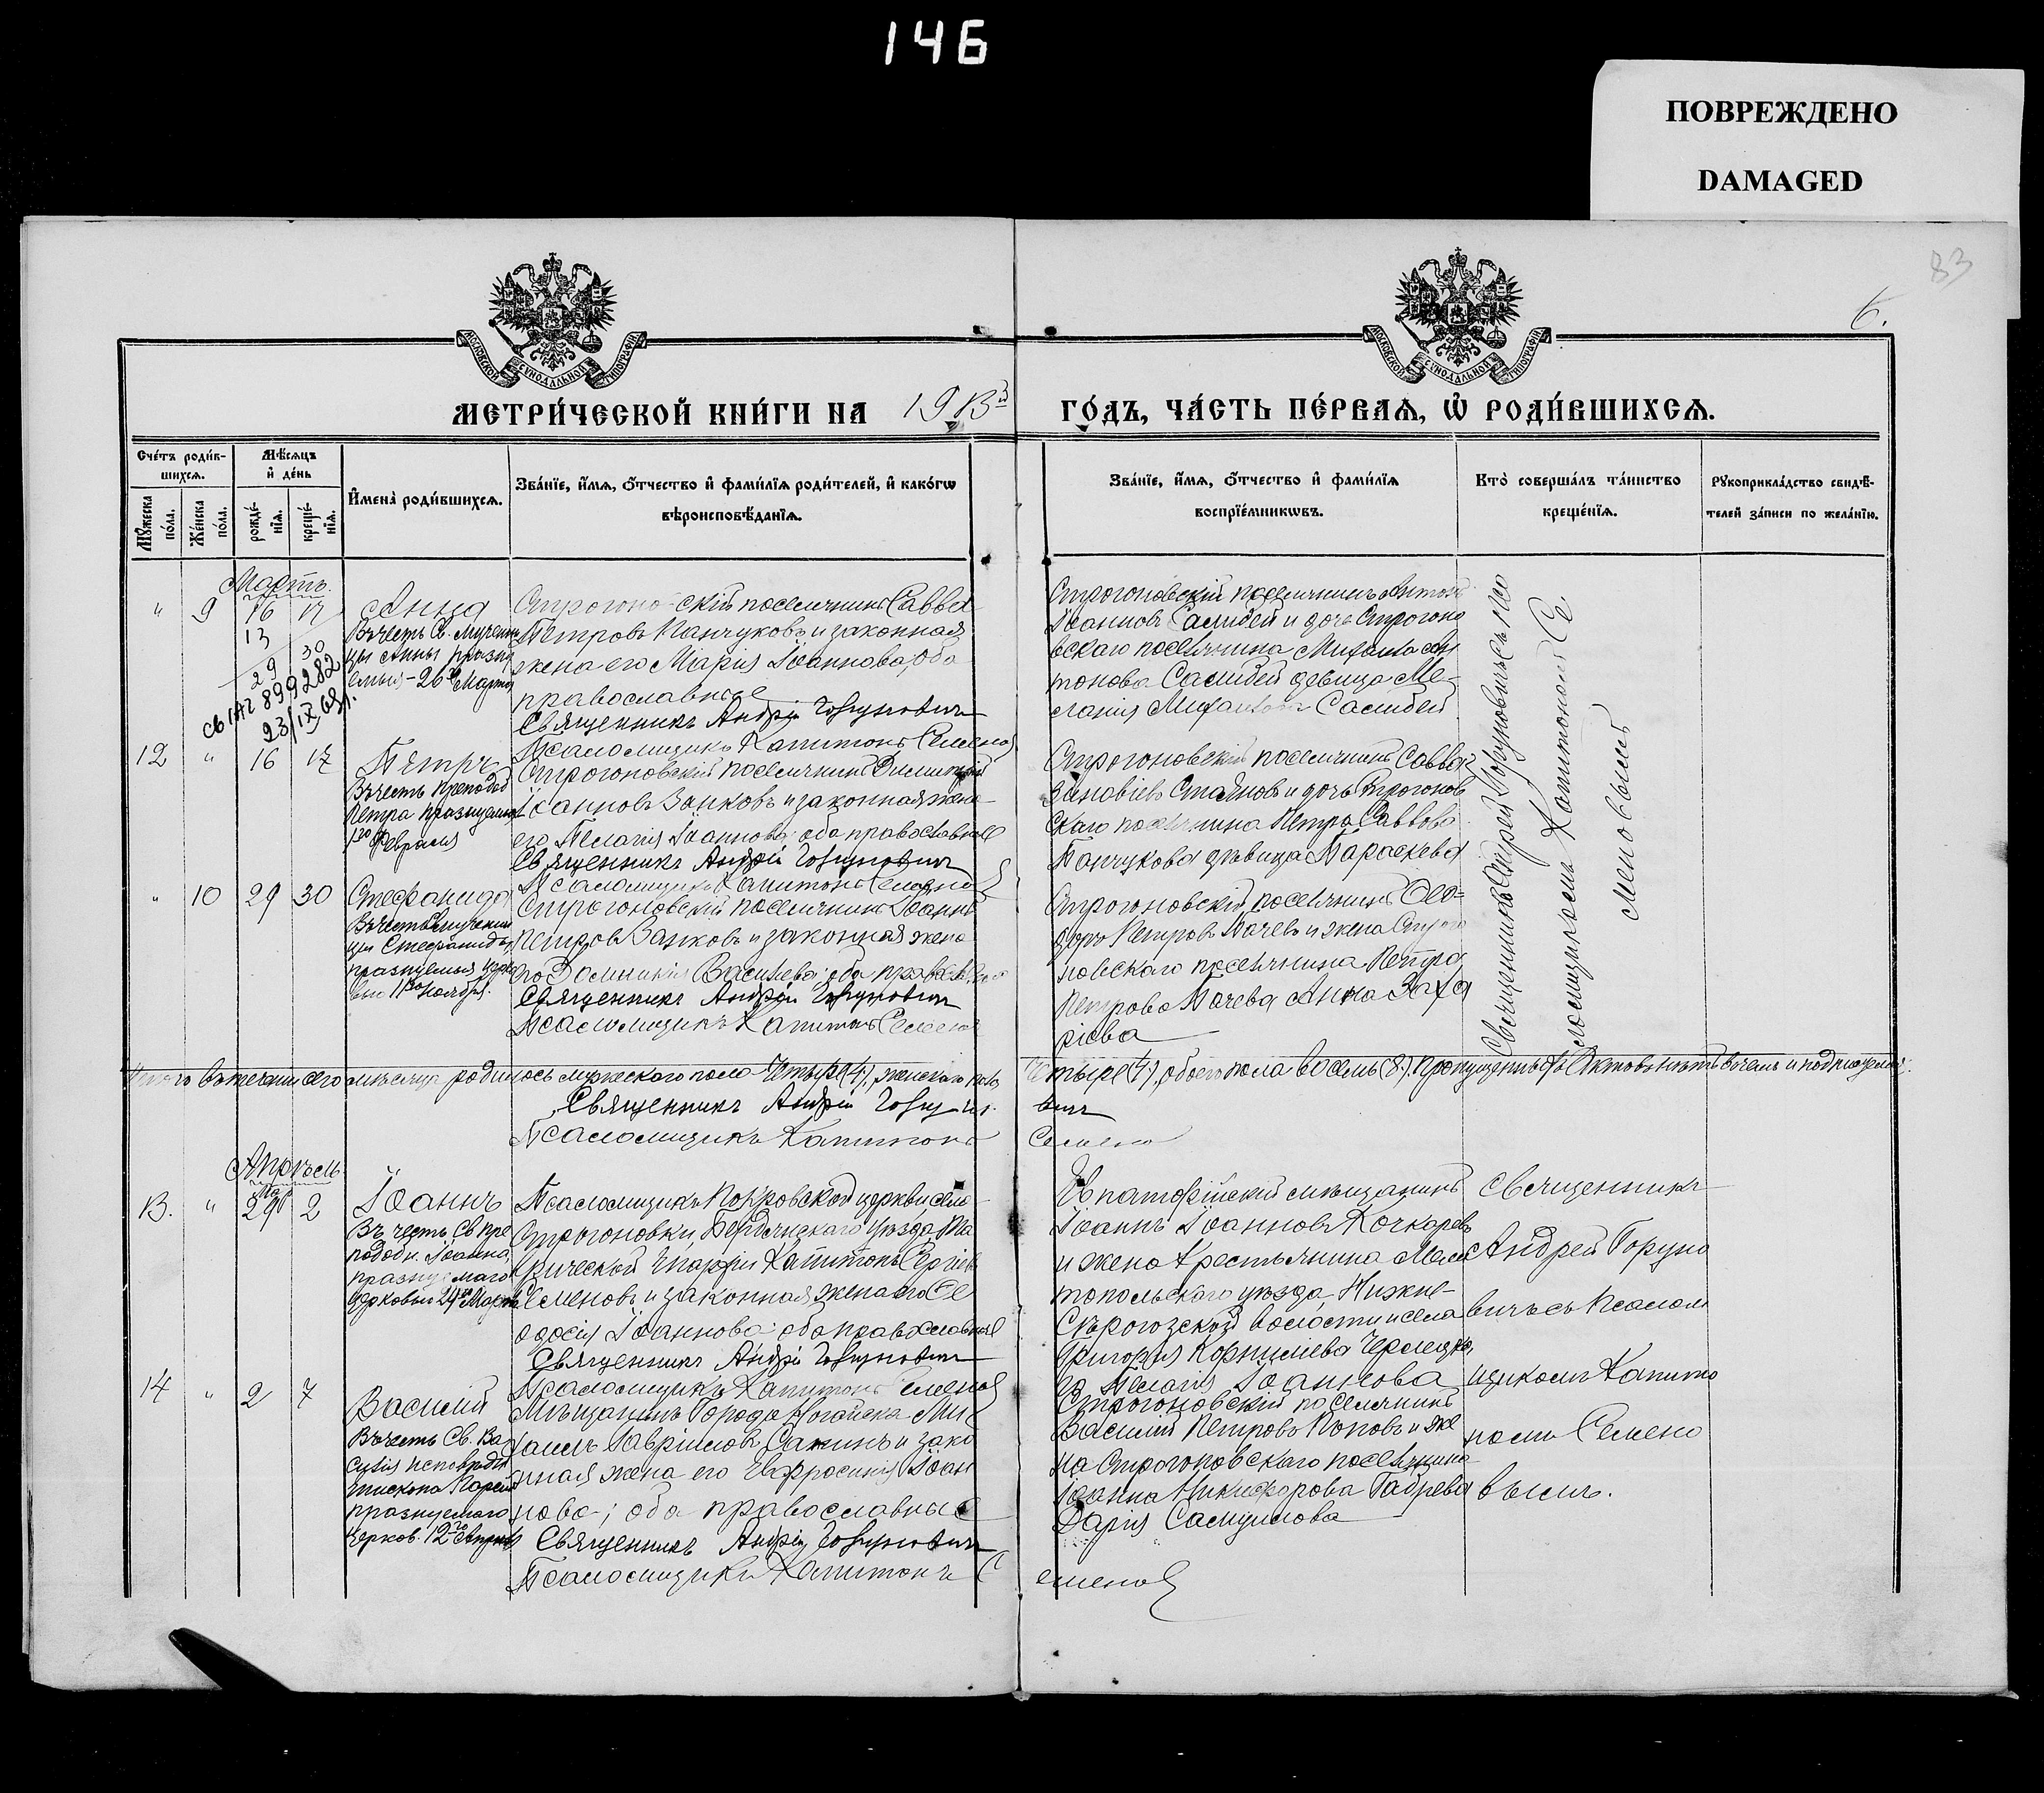 146
ПОВРЕЖДЕНО
DAMAGED
83
6.
МОСКОВСКОЙ СѴНОДАЛЬНОЙ ТИПОГРАФІИ
МОСКОВСКОЙ СѴНОДАЛЬНОЙ ТИПОГРАФІИ
МЕТРИ́ЧЕСКОЙ КНИ́ГИ НА 1913й
ГО́ДЪ, ЧА́СТЬ ПЕ́РВАѦ, Ѡ҆ РОДИ́ВШИХСѦ.
Сче́тъ роди́в-
шихсѧ.
Мꙋ́жеска по́ла.
Же́нска по́ла.
Мѣ́сѧцъ
и҆ де́нь
рожде́-
нїѧ.
креще́-
нїѧ.
И҆мена̀ роди́вшихсѧ.
Зва́нїе, и҆́мѧ, ѻ҆́тчество и҆ фами́лїѧ роди́телей, и҆ како́гѡ
вѣроисповѣ́данїѧ.
Зва́нїе, и҆́мѧ, ѻ҆́тчество и҆ фами́лїѧ
воспрїе́мникѡвъ.
Кто̀ соверша́лъ та́инство
креще́нїѧ.
Рꙋкоприкла́дство свидѣ́-
телей за́писи по жела́нїю.
Мартъ.
" 9 16 17
13
29 30
899282
23/IX
Анна
Въ честь Св. Мучени
цы Анны празд
26го Марта
Строгоновскій поселянинъ Савва
Петровъ Панчуковъ и законная
жена его Марія Іоаннова, оба
православные
Священникъ Андрей Горуновичъ
Псаломщикъ Капитонъ Семенов
Строгоновскій поселянинъ Антонъ
Іоанновъ Самибей и дочь Строгоно
вскаго поселянина Михаила Ан
тонова Самибей девица Ме-
ланія Михаилова Самибей
12 " 16 17
Петръ
Въ честь преподоб
Петра празднуемаго
1го Февраля
Строгоновскій поселянинъ Димитрій
Іоанновъ Занковъ и законная жена
его Пелагія Іоаннова; оба православные
Священникъ Андрей Горуновичъ
Псаломщикъ Капитонъ Семенов
Строгоновскій поселянинъ Савва
Зиновіевъ Стаяновъ и дочь Строгонов
скаго поселянина Петра Саввова
Панчукова девица Параскева
" 10 29 30
Стефанида
Въ честь Св. мучени
цы Стефаниды
празднуемыя церко
вью 11го Ноября.
Строгоновскій поселянинъ Іоаннъ
Петровъ Занковъ и законная жена
его Домникія Васильева; оба правосл.
Священникъ Андрей Горуновичъ
Псаломщикъ Капитонъ Семенов
Строгоновскій поселянинъ Ѳео-
доръ Петровъ Пачевъ и жена Строго
новскаго поселянина Петра
Петрова Пачева Анна Заха
ріева
Священникъ Андрей Горуновичъ съ Пса
ломщикомъ Капитономъ Се.
меновымъ
Итого въ теченіи сего месяца родилось мужескаго пола Четыре (4), женскаго пола
Четыре (4), обоего пола восемь (8). Пропущенныхъ Актовъ нетъ в чемъ и подписуемся:
Священникъ Андрей Горуно
вичъ
Псаломщикъ Капитонъ
Семенов
Апрель
13. " Мар 29 2
Іоаннъ
Въ честь Св Пре
подобн. Іоанна,
празднуемаго
церковью 29го Марта
Псаломщикъ Покровской церкви села
Строгоновки, Бердянскаго уезда Та
врической Епархіи Капитонъ Сергіев
Семеновъ и законная жена его Ѳе
одосія Іоаннова; оба православные
Священникъ Андрей Горуновичъ
Псаломщикъ Капитонъ Семенов
Евпаторійскій мещанинъ
Іоаннъ Іоанновъ Кочкаревъ
и жена крестьянина Мели
топольскаго уезда, Нижне-
Серогозской волости и села
Григорія Корнилева
го Пелагія Іоаннова
Священникъ
Андрей Горуно
вичъ съ Псалом
щикомъ Капито
номъ Семено
вымъ.
14 " 2 7
Василій
Въ честь Св. Ва
силія исповедн
Епископа Парій
празднуемаго
церков. 12го Апреля
Мещанинъ Города Ногайска Ми
хаилъ Гавриловъ Санинъ и зако
нная жена его Евфросинія Іоан
нова; оба православные
Священникъ Андрей Горуновичъ
Псаломщикъ Капитонъ С
еменов
Строгоновскій поселянинъ
Василій Петровъ Поповъ и же
на Строгоновскаго поселянина
Іоанна Никифорова Гаврева
Дарія Самуилова